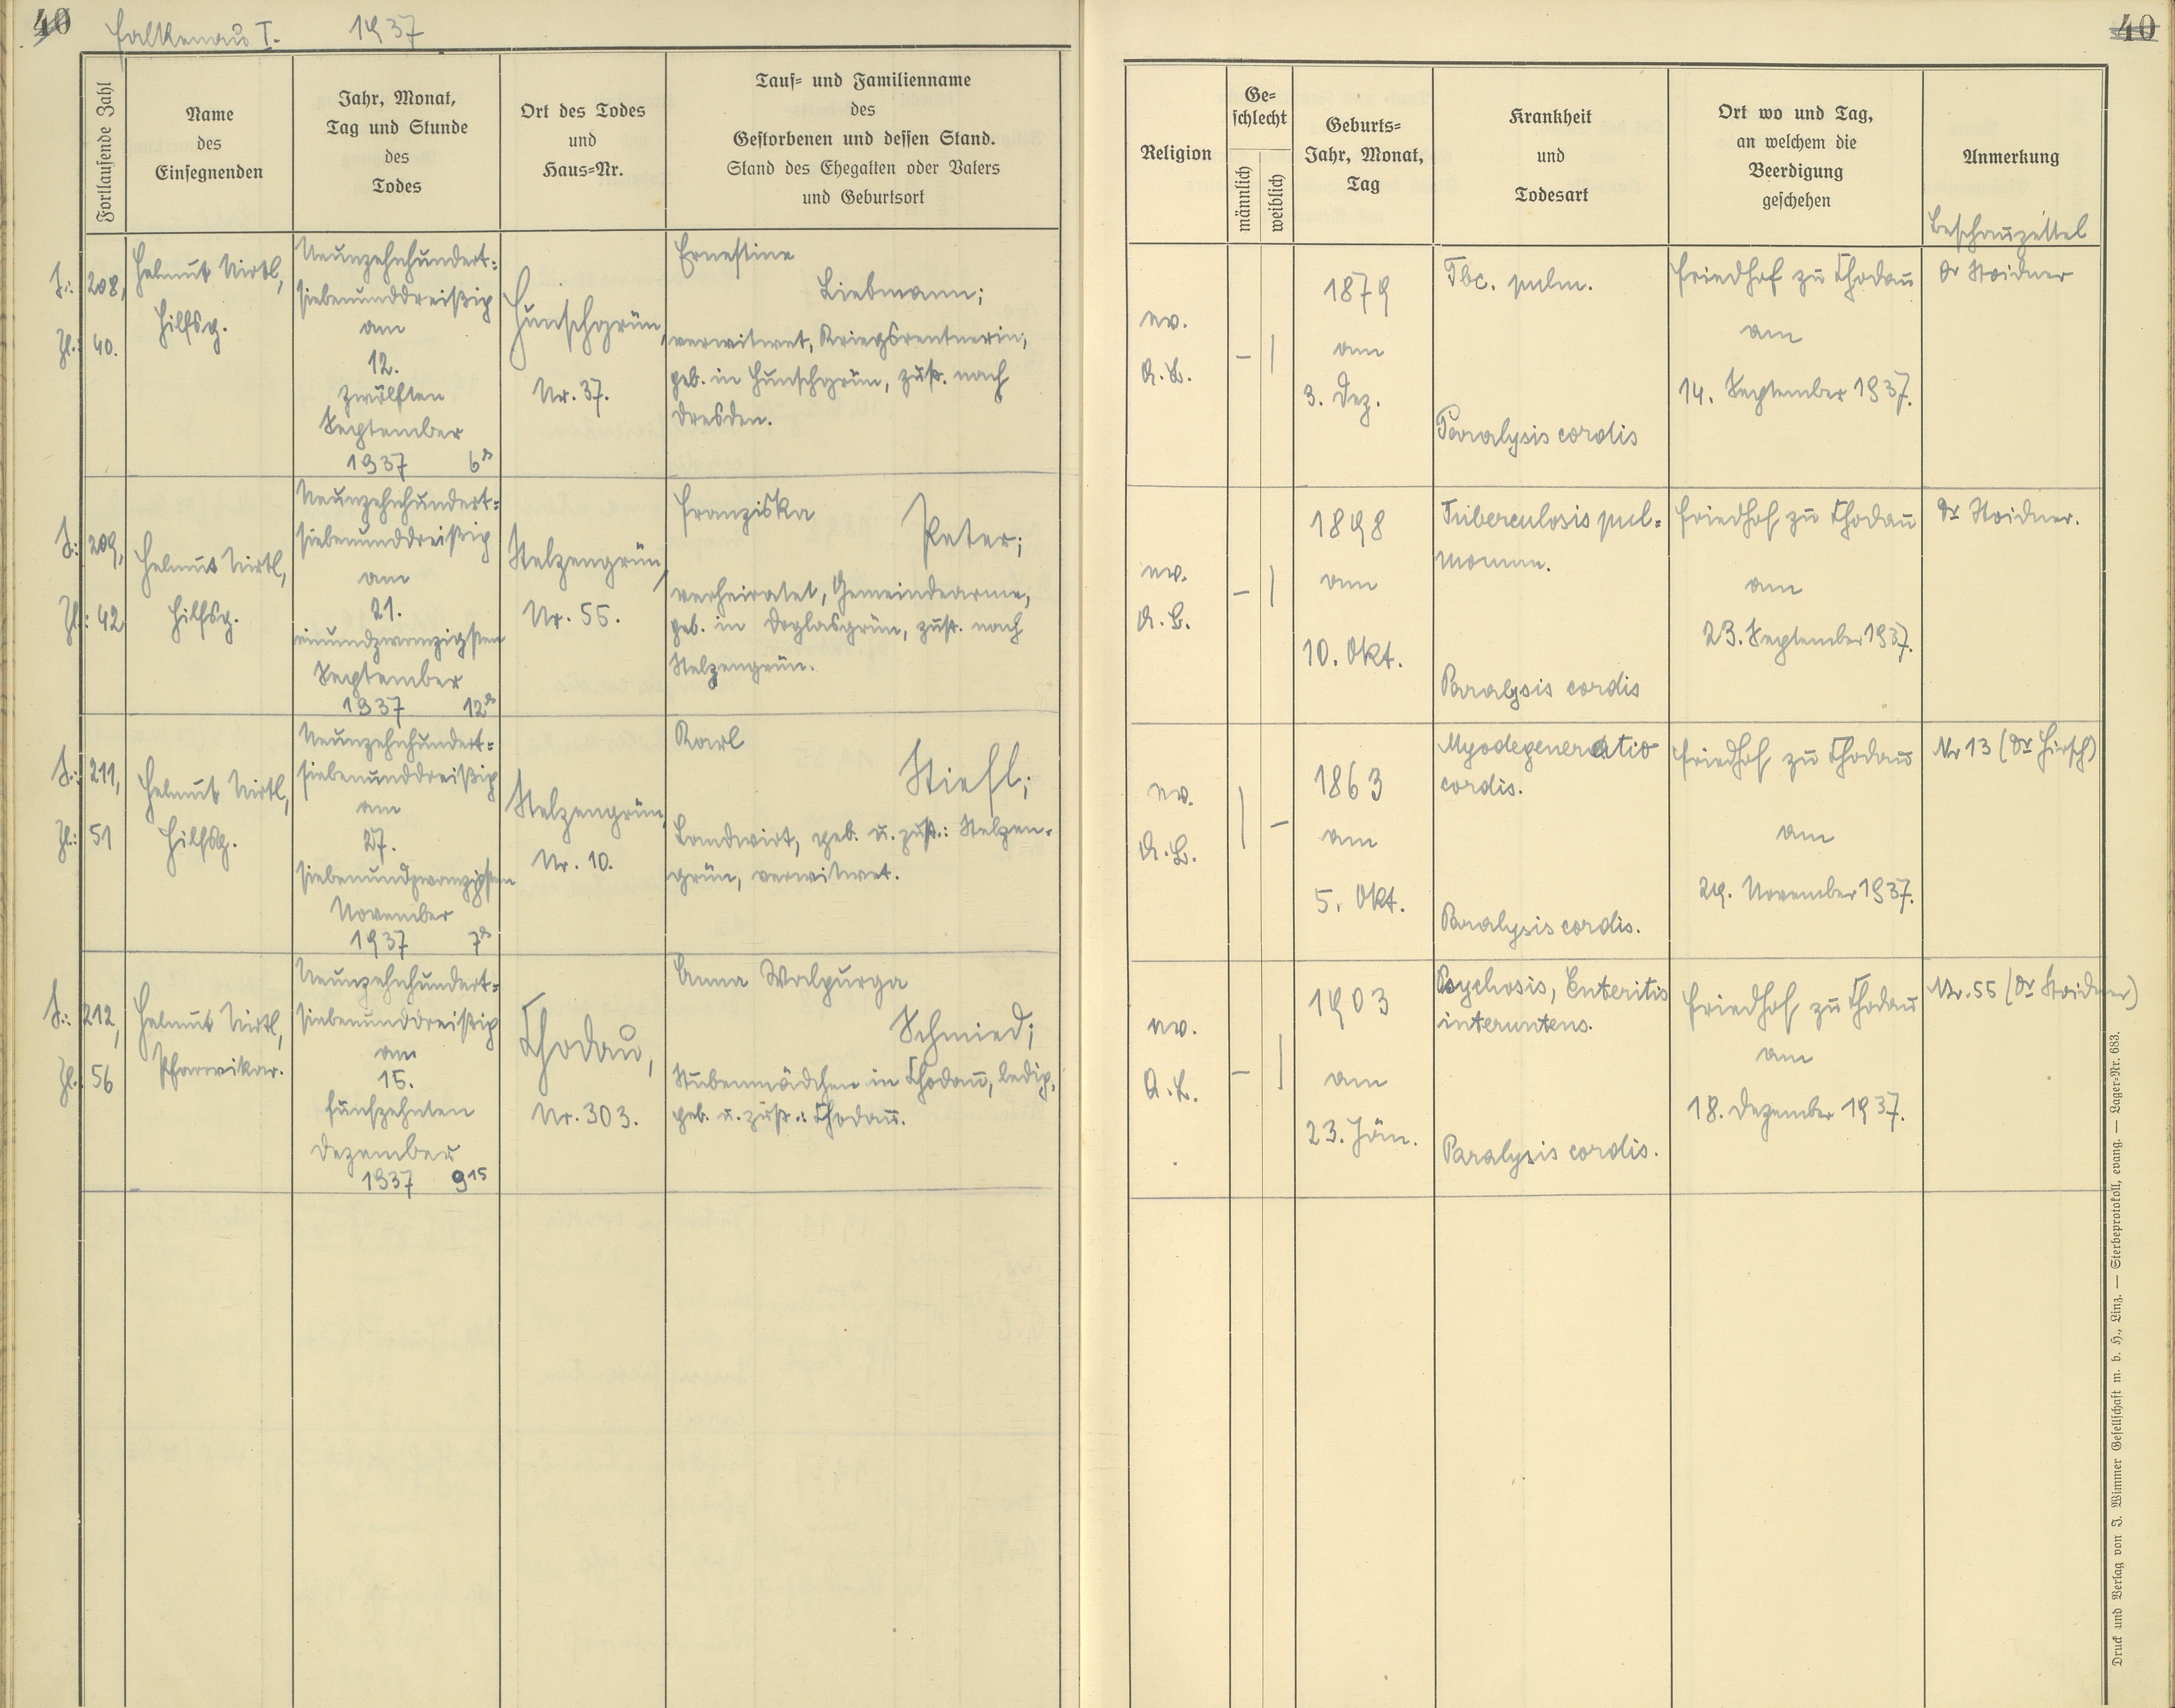 40
Falkenau I. 1937
Fortlaufende Zahl
Name
des
Einsegnenden
Jahr, Monat,
Tag und Stunde
des
Todes
Ort des Todes
und
Haus=Nr.
Tauf= und Familienname
des
Gestorbenen und dessen Stand.
Stand des Ehegatten oder Vaters
und Geburtsort
208,
40.
Helmut Nirtl,
Hilfsg.
Neunzehnhundert=
siebenunddreißig
am
12.
zwölften
September
1937 6h
Hunschgrün,
Nr. 37.
Ernestine
Liebmann;
verwitwet, Kriegsrentnerin,
geb. in Hunschgrün, zust. nach
Dresden.
209,
Zl.: 42
Helmut Nirtl,
Hilfsg.
Neunzehnhundert=
siebenunddreißig
am
21.
einundzwanzigsten
September
1937 12h
Stelzengrün,
Nr. 55.
Franziska
Peter;
verheiratet, Gemeindearme,
geb. in Doglasgrün, zust. nach
Stelzengrün.
211,
Zl.: 51
Helmut Nirtl,
Hilfsg.
Neunzehnhundert=
siebenunddreißig
am
27.
siebenundzwanzigsten
November
1937 7h
Stelzengrün,
Nr. 10.
Karl
Stiefl;
Landwirt, geb. u. zust.: Stelzen-
grün, verwitwet.
212,
Zl. 56
Helmut Nirtl,
Pfarrvikar.
Neunzehnhundert=
siebenunddreißig
am
15.
fünfzehnten
Dezember
1937 9 15
Chodau,
Nr. 303.
Anna Walpurga
Schmied;
Stubenmädchen in Chodau, ledig,
geb. u. zust.: Chodau.
40
Religion
Ge=
schlecht
männlich
weiblich
Geburts=
Jahr, Monat,
Tag
Krankheit
und
Todesart
Ort wo und Tag,
an welchem die
Beerdigung
geschehen
Anmerkung
Beschauzettel
ev.
A.B.
1879
am
3. Dez.
Tbc. pulm.
Paralysis cordis
Friedhof zu Chodau
am
14. September 1937.
Dr Stoidner
ev.
A.B.
1898
am
10. Okt.
Tuberculosis pul=
monum.
Paralysis cordis
Friedhof zu Chodau
am
23. September 1937.
Dr Stoidner.
ev.
A.B.
1863
am
5. Okt.
Myodegeneratio
cordis.
Paralysis cordis.
Friedhof zu Chodau
am
29. November 1937.
Nr 13 (Dr Hirsch)
ev.
A.B.
1903
am
23. Jän.
Psychosis, Enteritis
Paralysis cordis.
Friedhof zu Chodau
am
18. Dezember 1937.
Nr. 55 (Dr Stoidner)
Druck und Verlag von J. Wimmer Gesellschaft m. b. H., Linz. — Sterbeprotokoll, evang. — Lager=Nr. 683.